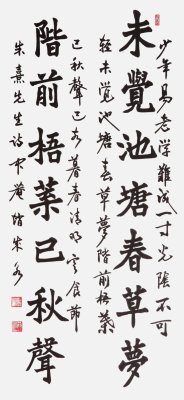 未覺池塘春草夢
階前梧葉已秋聲
少年易老學難成一寸光陰不可
輕未覺池塘春草夢階前梧葉
已秋聲己亥暮春清明寒食節
朱熹先生詩